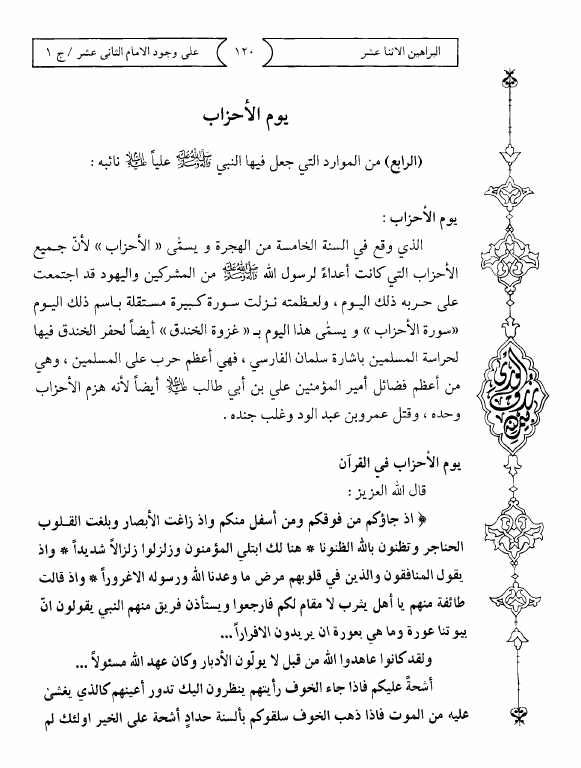 البراهين الاثنا عشر
١٢٠
على وجود الامام الثانى عشر / ج ١
يوم الأحزاب
(الرابع) من الموارد التي جعل فيها النبي ﷺ علياً عليه السلام نائبه :
يوم الأحزاب :
الذي وقع في السنة الخامسة من الهجرة و يسمّى « الأحزاب » لأنّ جميع
الأحزاب التي كانت أعداءً لرسول الله ﷺ من المشركين واليهود قد اجتمعت
على حربه ذلك اليوم ، ولعظمته نزلت سورة كبيرة مستقلة باسم ذلك اليوم
«سورة الأحزاب » و يسمّى هذا اليوم بـ « غزوة الخندق » أيضاً لحفر الخندق فيها
لحراسة المسلمين باشارة سلمان الفارسي ، فهي أعظم حرب على المسلمين ، وهي
من أعظم فضائل أمير المؤمنين علي بن أبي طالب عليه السلام أيضاً لأنه هزم الأحزاب
وحده ، وقتل عمروبن عبد الود وغلب جنده .
يوم الأحزاب في القرآن
قال الله العزيز :
﴿ اذ جاؤكم من فوقكم ومن أسفل منكم واذ زاغت الأبصار وبلغت القلوب
الحناجر وتظنون بالله الظنونا * هنا لك ابتلي المؤمنون وزلزلوا زلزالاً شديداً * واذ
يقول المنافقون والذين في قلوبهم مرض ما وعدنا الله ورسوله الاغروراً * واذ قالت
طائفة منهم يا أهل يثرب لا مقام لكم فارجعوا ويستأذن فريق منهم النبي يقولون انّ
بيو تنا عورة وما هي بعورة ان يريدون الافراراً ...
ولقد كانوا عاهدوا الله من قبل لا يولّون الأدبار وكان عهد الله مسئولاً ...
أشحةً عليكم فاذا جاء الخوف رأيتهم ينظرون اليك تدور أعينهم كالذي يغشىٰ
عليه من الموت فاذا ذهب الخوف سلقوكم بألسنة حدادٍ أشحة على الخير اولئك لم